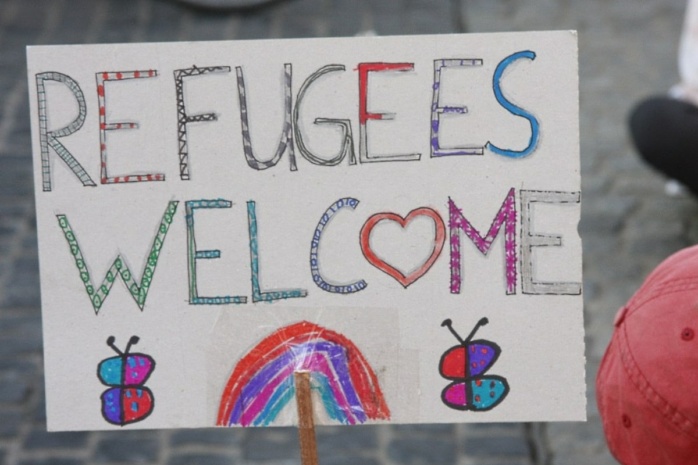 REFUGEES
WELCOME